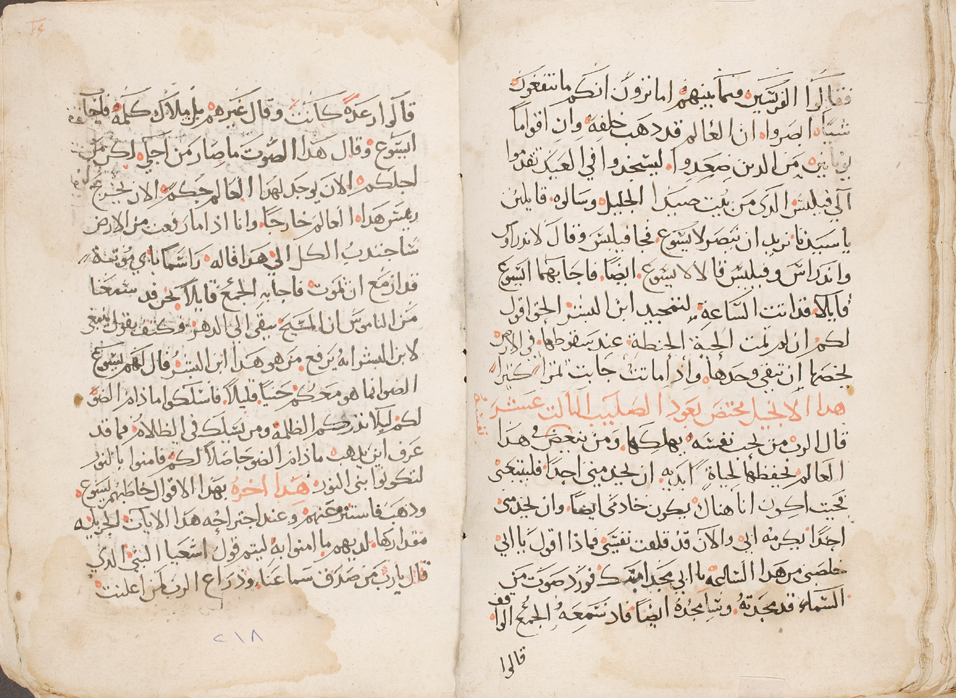 فقالوا الفريسين فيما بينهم اما ترون انكم ما تنفعون
شيئا انصروا ان العالم قد ذهب خلفه وان اقواما
يونانيين من الدين صعدوا ليسجدوا في العيد تقدموا
الى فيلبس الدى من بيت صيدا الجليل وسالوه قايلين
يا سيدنا نريد ان نبصر لايسوع فجا فيلبس وقال لاندراوس
واندراس وفيلبس قالا لايسوع ايضا فاجابهما ايسوع
قايلا قد اتت الساعه ليتمجيد ابن البشر الحق اقول
لكم ان لم تمت الحبة الحنطة عند سقوطها في الارض
ان تبقى وحدها واذا ماتت جابت ثمرا كثيرا
هدا الانجيل يختص بعود الصليب الثالث عشر
قال الرب من يحب نفسه يهلكها ومن يبغض في هدا
العالم يحفظها لحياة ابديه ان يخدمني احدا فليتبعنى
بحيث اكون انا هناك يكون خادمي ايضا وان يخدمني
احدا يكرمه ابي والان قد قلقت نفسي فماذا اقول يا ابي
خلصني من هدا الساعه يا ابي مجد ابنك فورد صوت من
السماء قد مجدته وسامجده ايضا فاد سمعه الجمع الواقف
قالوا
قالوا رعدة كانت وقال غيرهم بل ملاك كلمه فاجاب
ايسوع وقال هدا الصوت ما صار من اجلي لكن من
اجلكم الان يوجد لهدا العالم حكم الان يخرج
ريس هدا العالم خارجا وانا اذا ما رفعت من الارض
ساجتدب الكل الي هدا قاله راسما باي موتة
قد ازمع ان يموت فاجابه الجمع قايلا نحن قد سمعنا
من الناموس ان المسيح يبقى الى الدهر وكيف تقول ينبغي
لابن البشر انه يرفع من هو هدا ابن البشر قال لهم ايسوع
الضو انما هو معكم حينا قليلا فاسلكوا ما دام الضو
لكم ليلا تدرككم الظلمة ومن يسلك في الظلام فما قد
عرف اين يذهب ما دام الضو حاصلا لكم فامنوا بالنور
لتكونوا بنى النور هدا اخره بهدا الاقوال خاطبهم ايسوع
ودهب فاستتر عنهم وعند اجتراحه هدا الايات الجزيله
مقدارها لديهم ما امنوا به ليتم قول اشعيا النبي الدي
قال يارب من صدق سماعنا ودراع الرب لمن اعلنت
٢١٨